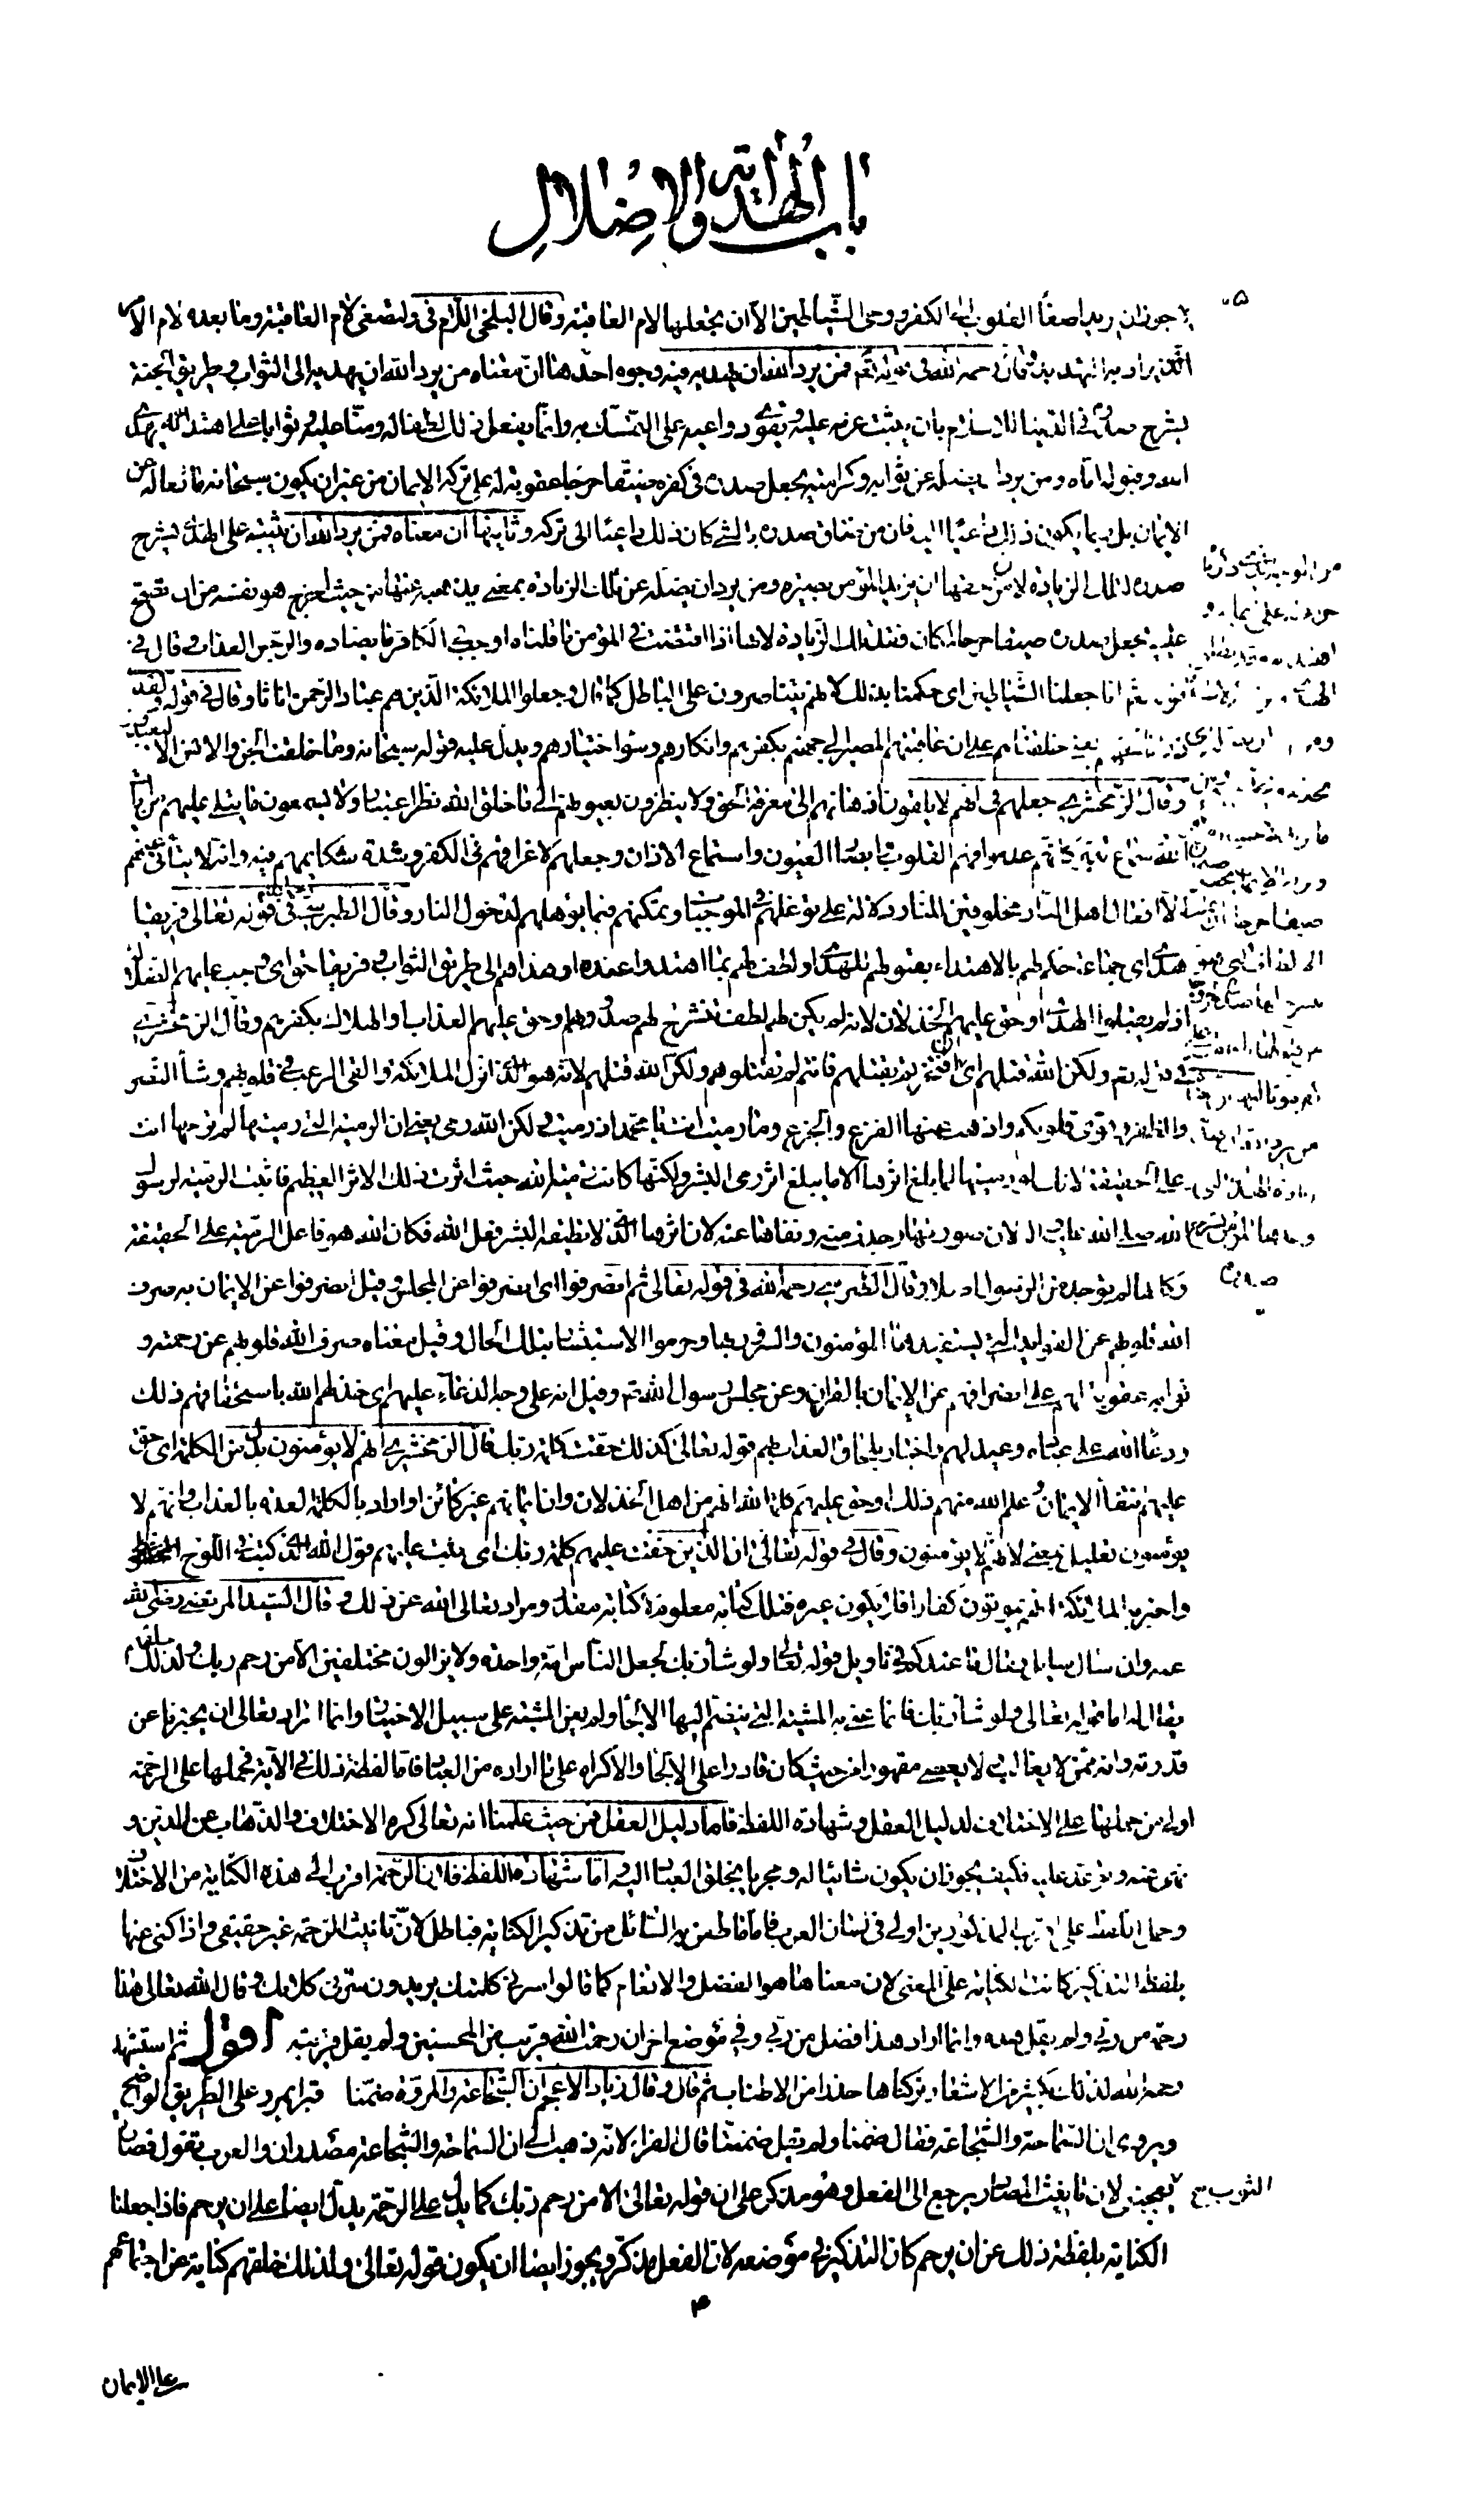 باب الهداية والاضلال
يجوز ان يريد اصغاء القلوب الى الكفر ووحى الشياطين الا ان يجعلها لام العاقبة وقال البلخى اللام فى ولتصغى لام العاقبة وما بعده لام الامر
الذى يراد به التهديد قال رحمه الله فى قوله تعم فمن يرد الله ان يهديه فيه وجوه احدها ان معناه من يرد الله ان يهديه الى الثواب وطريق الجنة
يشرح صدره فى الدنيا للاسلام بان يثبت عزمه عليه ويقوى دواعيه على التمسك به وانما يفعل ذلك لطفا له ومنا عليه وثوابا على اهتدائه بهدى
الله وقبوله اياه ومن يرد ان يضله عن ثوابه وكرامته يجعل صدره فى كفره ضيقا حرجا عقوبة له على تركه الايمان من غير ان يكون سبحانه مانعا له عن
الايمان بل ربما يكون ذلك داعيا اليه فان من ضاق صدره بالشئ كان ذلك داعيا الى تركه وثانيها ان معناه فمن يرد الله ان يثبته على الهدى يشرح
صدره لتلك الزيادة لان من حقها ان يزيد المؤمن بصيرة ومن يرد ان يضله عن تلك الزيادة بمعنى يذهبه عنها من حيث اخرج هو نفسه من ان تصح
عليه يجعل صدره ضيقا حرجا لمكان فقد تلك الزيادة لانها اذا اقتضت فى المؤمن ما قلناه اوجب فى الكافر ما يضاده والرجس العذاب وقال فى
قوله تعم انا جعلنا الشياطين اى حكمنا بذلك لانهم يتناصرون على الباطل كما قال وجعلوا الملائكة الذين هم عباد الرحمن اناثا وقال فى قوله ولقد
ذرانا لجهنم يعنى خلقناهم على ان عاقبتهم المصير الى جهنم بكفرهم وانكارهم وسوء اختيارهم ويدل عليه قوله سبحانه وما خلقت الجن والانس الا ليعبدون
وقال الزمخشرى جعلهم فى انهم لا يلقون اذهانهم الى معرفة الحق ولا ينظرون بعيونهم الى ما خلق الله نظر اعتبار ولا يسمعون ما يتلى عليهم من ايات
الله سماع تدبر كانهم عدموا فهم القلوب وابصار العيون واستماع الاذان وجعلهم لاغراقهم فى الكفر وشدة شكائمهم فيه وانه لا يتأتى منهم
الا افعال اهل النار مخلوقين للنار دلالة على توغلهم فى الموجبات وتمكنهم فيما يؤهلهم لدخول النار وقال الطبرسى فى قوله تعالى فريقا
هدى اى جماعة حكم لهم بالاهتداء بقبولهم للهدى او لطف لهم بما اهتدوا عنده او هداهم الى طريق الثواب وفريقا حق اى وجب عليهم الضلالة
اذ لم يقبلوا الهدى او حق عليهم الخذلان لانه لم يكن لهم لطف تنشرح لهم صدورهم او حق عليهم العذاب والهلاك بكفرهم وقال الزمخشرى
فى قوله تعم ولكن الله قتلهم اى ان افتخرتم بقتلهم فانتم لم تقتلوهم ولكن الله قتلهم لانه هو الذى انزل الملائكة والقى الرعب فى قلوبهم وشاء النصر
والظفر وقوى قلوبكم واذهب عنها الفزع والجزع وما رميت انت يا محمد اذ رميت ولكن الله رمى يعنى ان الرمية التى رميتها لم ترمها انت
على الحقيقة لانك لو رميتها لما بلغ اثرها الا ما يبلغ اثر رمى البشر ولكنها كانت رمية الله حيث اثرت ذلك الاثر العظيم فاثبت الرمية لرسول
الله صلى الله عليه واله لان صورتها وجدت منه ونفاها عنه لان اثرها الذى لا تطيقه البشر فعل الله فكان الله هو فاعل الرمية على الحقيقة
وكانها لم توجد من الرسول اصلا وقال الطبرسى رحمه الله فى قوله تعالى ثم انصرفوا اى انصرفوا عن المجلس وقيل انصرفوا عن الايمان به صرف
الله قلوبهم عن الفوائد التى يستفيدها المؤمنون والسرور بها وحرموا الاستبشار بتلك الحال وقيل معناه صرف الله قلوبهم عن رحمته و
ثوابه عقوبة لهم على انصرافهم عن الايمان بالقران وعن مجلس رسول الله وقيل انه على وجه الدعاء عليهم اى خذلهم الله باستحقاقهم ذلك
ودعاء الله على عباده وعيد لهم واخبار بلحاق العذاب بهم قوله تعالى كذلك حقت كلمة ربك قال الزمخشرى انهم لا يؤمنون بدل من الكلمة اى حق
عليهم انتفاء الايمان وعلم الله منهم ذلك او حق عليهم كلمة الله انهم من اهل الخذلان وان ايمانهم غير كائن او اراد بالكلمة العدة بالعذاب وانهم لا
يؤمنون تعليل بمعنى لانهم لا يؤمنون وقال فى قوله تعالى ان الذين حقت عليهم كلمة ربك اى يثبت عليهم قول الله الذى كتب فى اللوح المحفوظ
واخبر به الملائكة انهم يموتون كفارا فلا يكون غيره فتلك كتابة معلوم لا كتابة مقدر ومراد تعالى الله عن ذلك وقال السيد المرتضى رضى الله
عنه وان سال سائل فقال ما عندكم فى تاويل قوله تعالى ولو شاء ربك لجعل الناس امة واحدة ولا يزالون مختلفين الا من رحم ربك ولذلك خلقهم
يقال له اما قوله تعالى ولو شاء ربك فانما عنى به المشية التى ينضم اليها الالجاء ولم يعن المشية على سبيل الاختيار وانما اراد تعالى ان يخبرنا عن
قدرته وانه ممن لا يغالب ولا يعصى مقهورا من حيث كان قادرا على الالجاء والاكراه على ما اراده من العباد فاما لفظة ذلك فى الاية فحملها على الرحمة
اولى من حملها على الاختلاف لدليل العقل وشهادة اللفظ فاما دليل العقل فمن حيث علمنا انه تعالى كره الاختلاف والذهاب عن الدين و
نهى عنه وتوعد عليه فكيف يجوز ان يكون شائيا له ومجريا بخلق العباد اليه اما شهادة اللفظ فلان الرحمة اقرب الى هذه الكناية من الاختلاف
وحمل اللفظ على اقرب المذكورين اولى فى لسان العرب فاما ما طعن به السائل من تذكير الكناية فباطل لان تانيث الرحمة غير حقيقى واذا كنى عنها
بلفظ التذكير كانت الكناية على المعنى لان معناها هو الفضل والانعام كما قالوا سرنى كلمتك يريدون سرنى كلامك وقال الله تعالى هذا
رحمة من ربى ولم يقل هذه وانما اراد هذا فضل من ربى وفى موضع اخر ان رحمت الله قريب من المحسنين ولم يقل قريبة اقول ثم استشهد
رحمه الله لذلك بكثير من الاشعار تركناها حذرا من الاطناب ثم قال وقال زياد الاعجم ان الشجاعة والمروة ضمنا قبرا بمرو على الطريق الواضح
ويروى ان السماحة والشجاعة فقال ضمنا ولم يقل ضمنتا قال الفراء لانه ذهب الى ان السماحة والشجاعة مصدران والعرب تقول قصارة
الثوب يعجبنى لان تانيث المصادر يرجع الى الفعل وهو مذكر على ان قوله تعالى الا من رحم ربك كما يدل على الرحمة يدل ايضا على ان يرحم فاذا جعلنا
الكناية بلفظة ذلك عن ان يرحم كان التذكير فى موضعه لان الفعل مذكر ويجوز ايضا ان يكون قوله تعالى ولذلك خلقهم كناية عن اجتماعهم
على الايمان